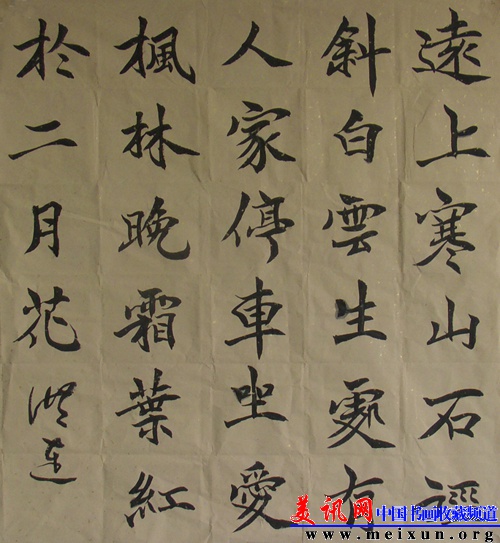 遠上寒山石徑
斜白雲生處有
人家停車坐愛
楓林晚霜葉紅
於二月花
美讯网 中国书画收藏频道
www.meixun.org